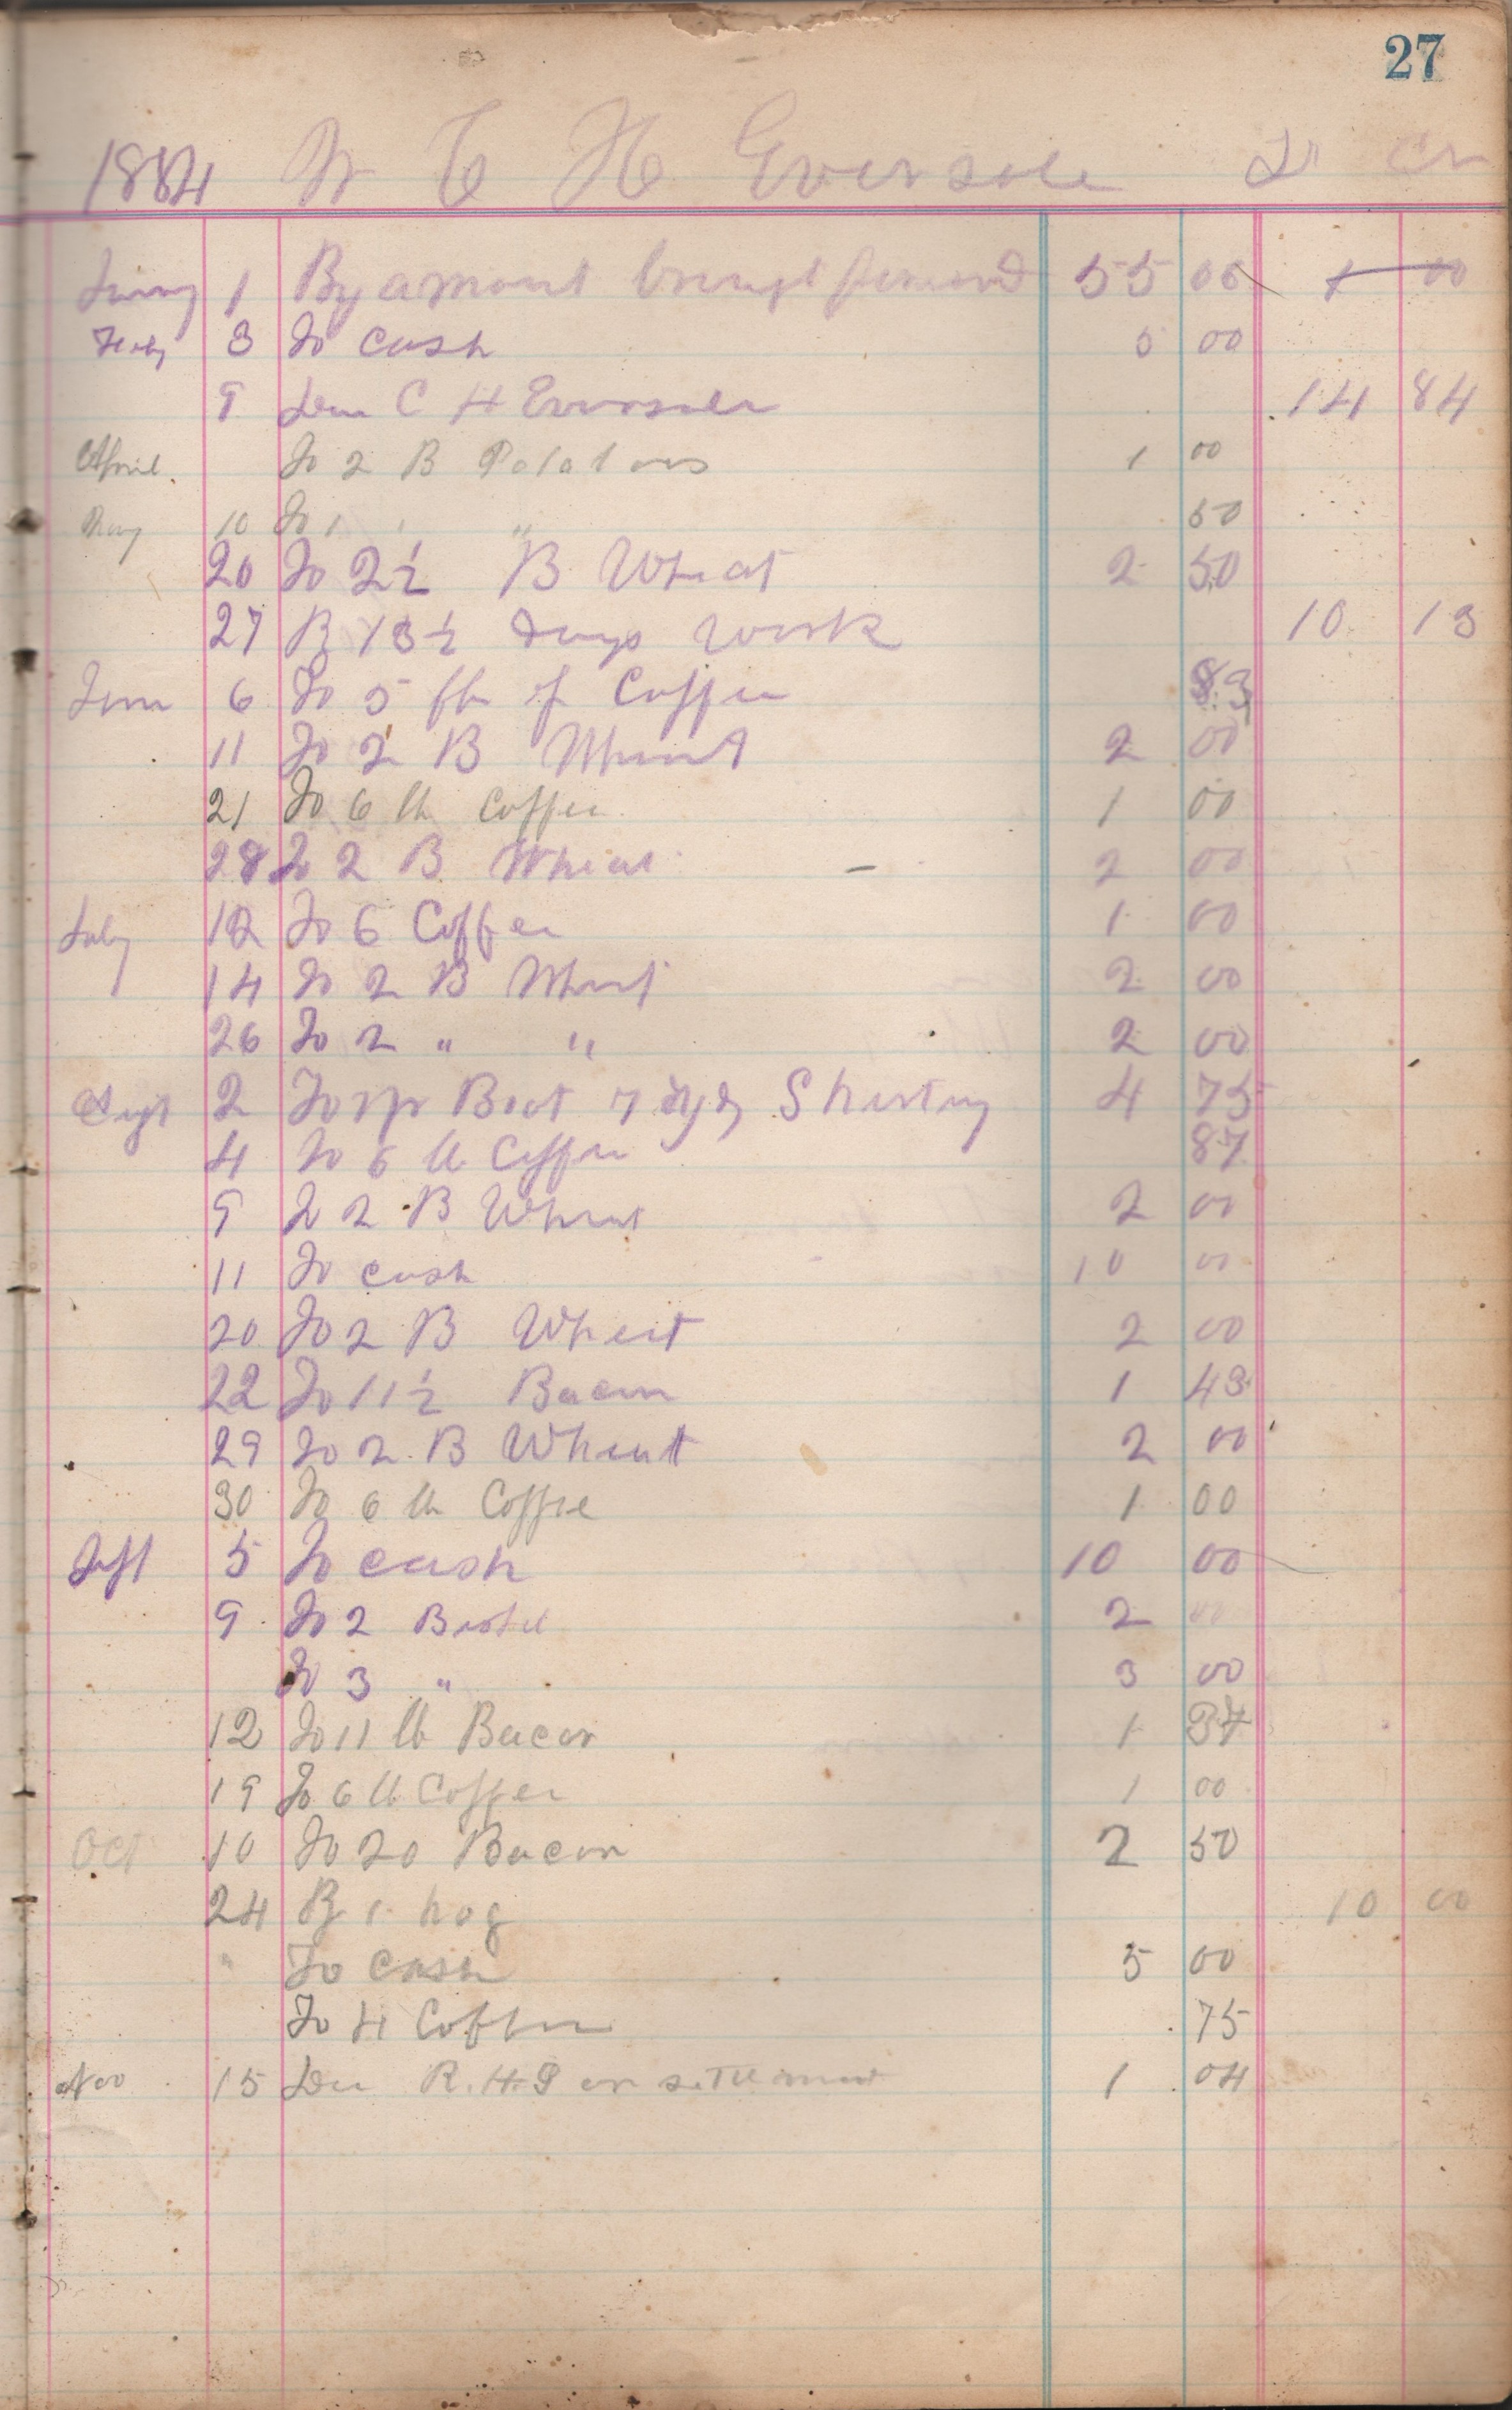 27
1884 W C H Eversole Dr Cr
1 By amont brought forward 55 00 1 00
Feby 3 To cash 5 00
9 C H Eversole 14 84
April To 2 B Potatoes 1 00
May 10 To 1 " " 50
20 To 2½ B Wheat 2 50
27 B 13½ days work 10 13
June 6 To 5 lb of Coffee 83
11 To 2 B Wheat 2 00
21 To 6 lb Coffee 1 00
28 To 2 B Wheat 2 00
July 12 To 6 Coffee 1 00
14 To 2 B Wheat 2 00
26 To 2 " " 2 00
2 To pr Boot 7 yds Shirting 4 75
4 To 5 lb Coffee 87
9 To 2 B Wheat 2 00
11 To cash 10 00
20 To 2 B Wheat 2 00
22 To 11½ Bacon 1 43
29 To 2 B Wheat 2 00
30 To 6 lb Coffee 1 00
5 To cash 10 00
9 To 2 2 00
To 3 " 3 00
12 To 11 lb Bacon 1 37
19 To 6 lb Coffee 1 00
Oct 10 To 20 Bacon 2 50
24 By 1 hog 10 00
" To cash 5 00
To 4 Coffee 75
Nov 15 Due R. H. on settlement 1 04